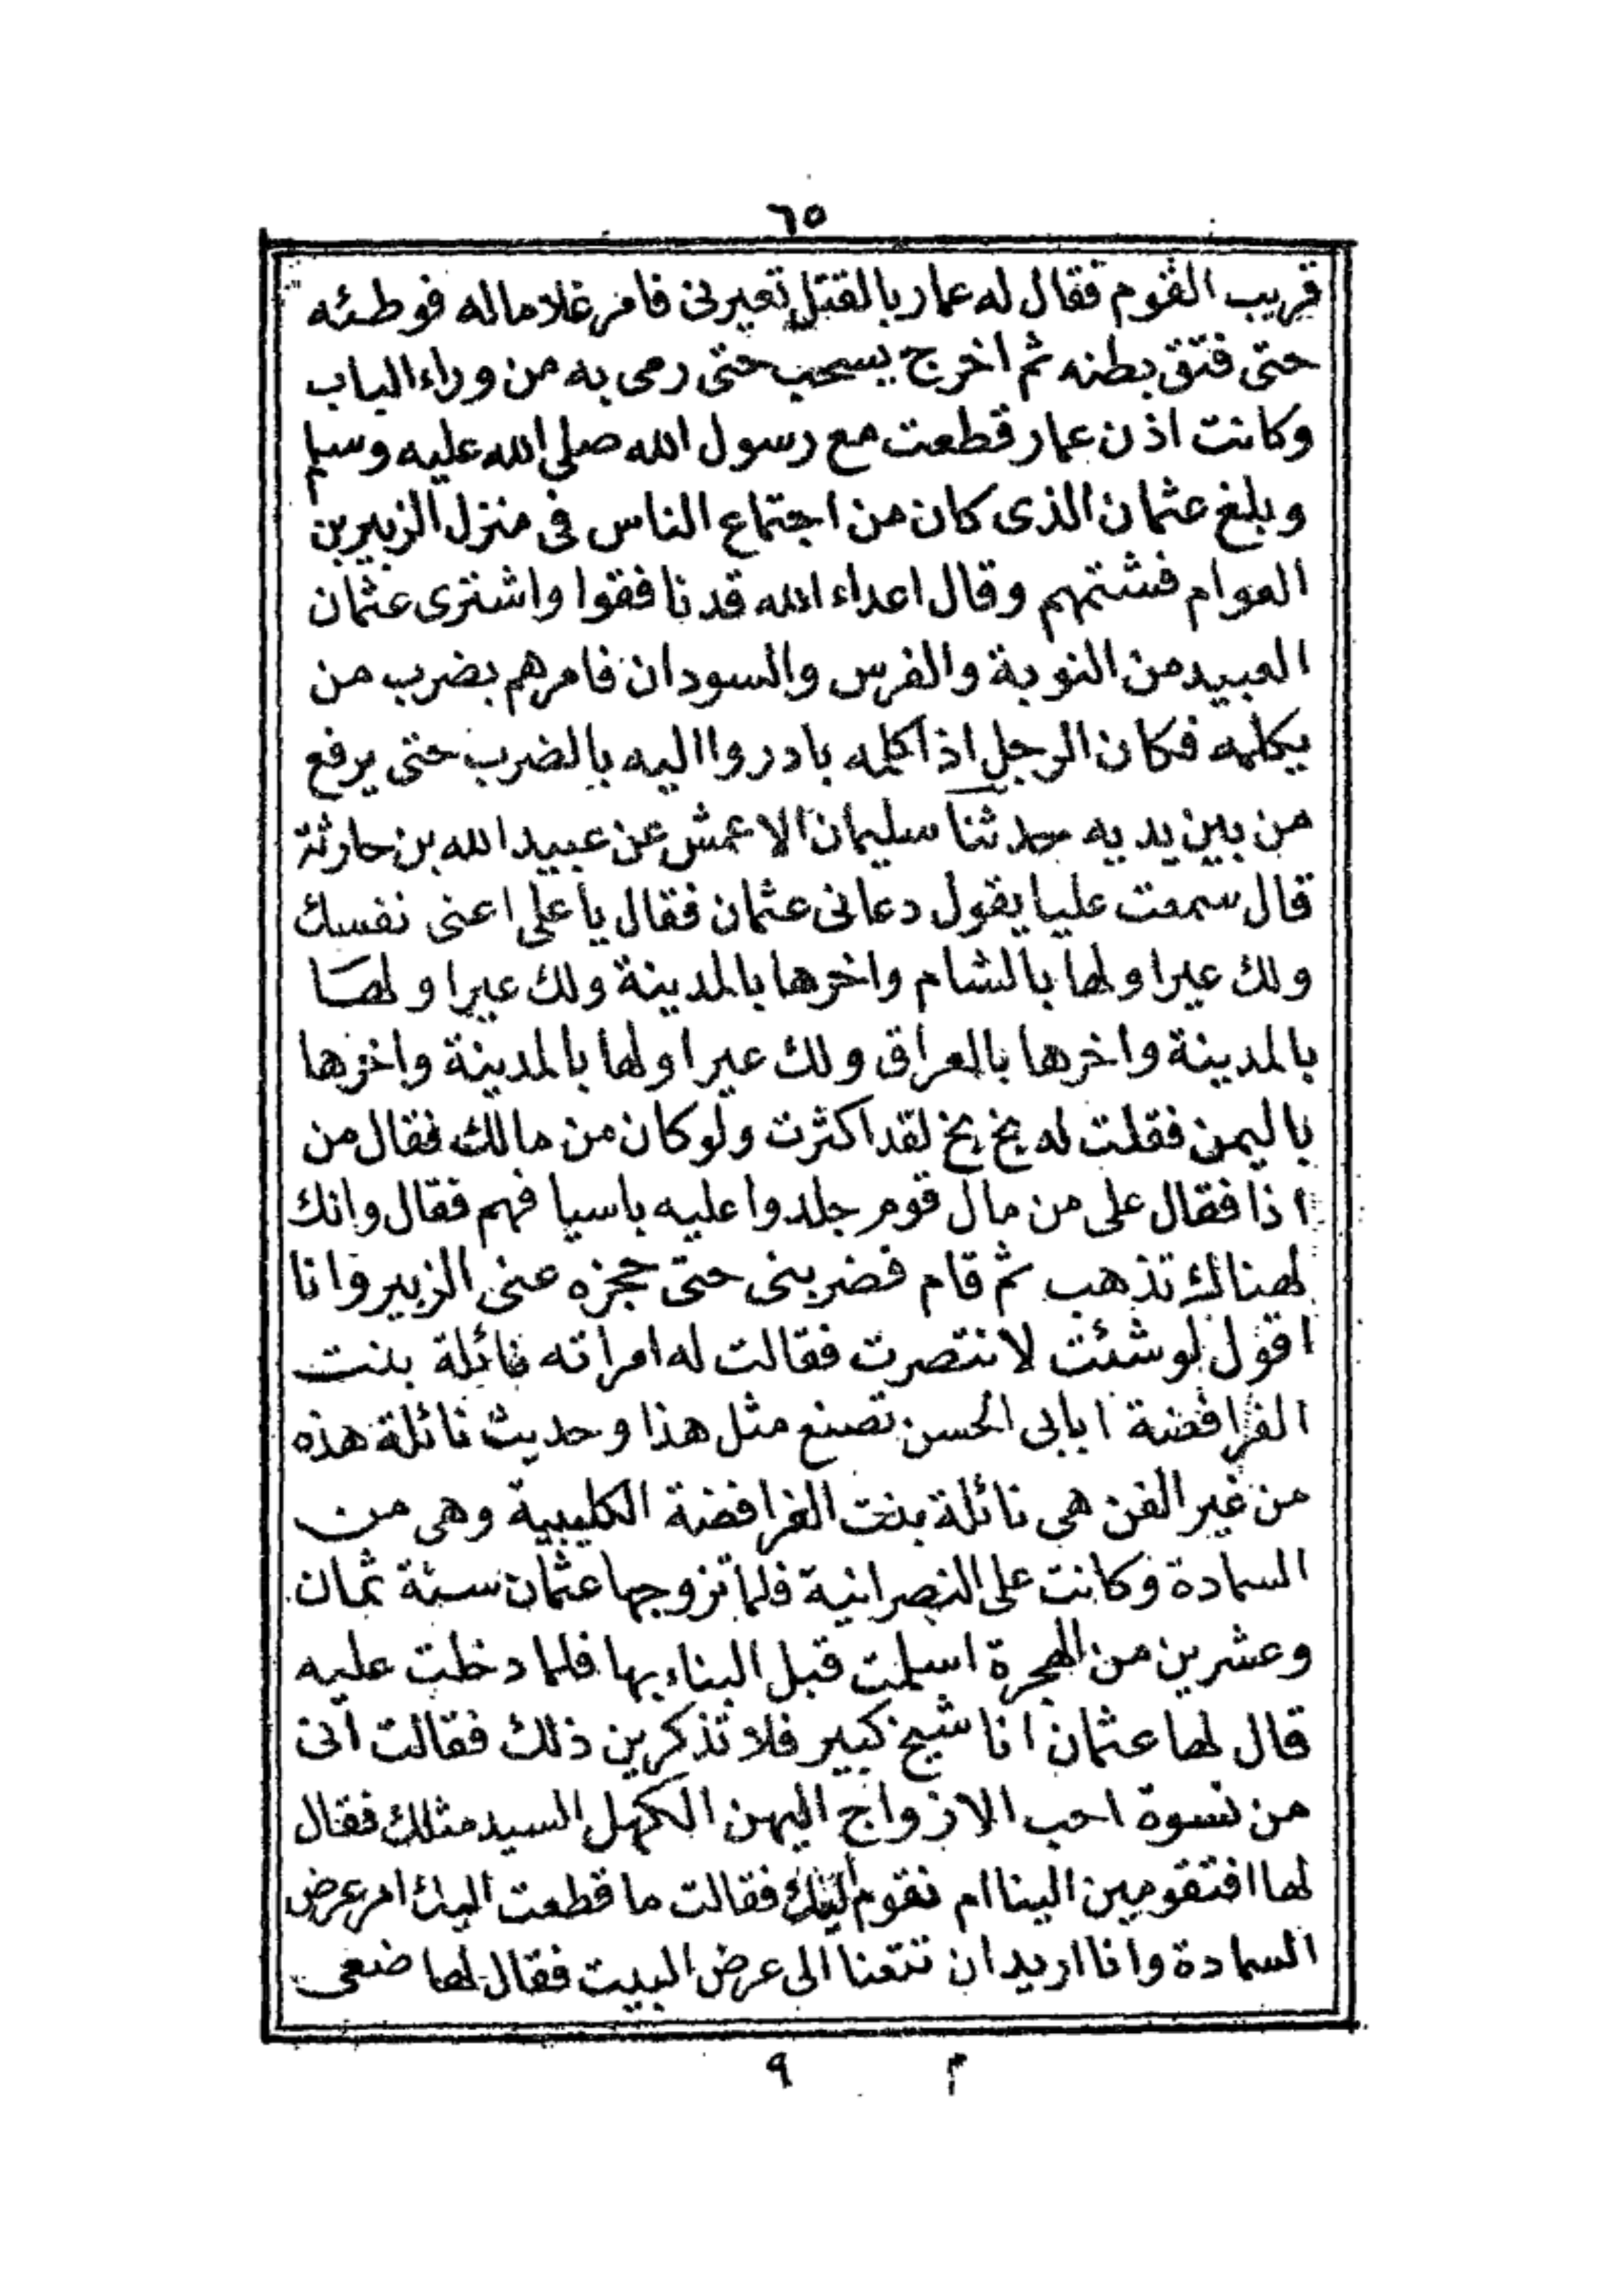 ٦٥
قريب القوم فقال له عمار بالقتل تعيرنى فامر غلاما له فوطئه
حتى فتق بطنه ثم اخرج يسحب حتى رمى به من وراء الباب
وكانت اذن عمار قطعت مع رسول الله صلى الله عليه وسلم
وبلغ عثمان الذى كان من اجتماع الناس فى منزل الزبير بن
العوام فشتمهم وقال اعداء الله قد نافقوا واشترى عثمان
العبيد من النوبة والفرس والسودان فامرهم بضرب من
يكلمه فكان الرجل اذا كلمه بادروا اليه بالضرب حتى يرفع
من بين يديه حدثنا سليمان الاعمش عن عبيد الله بن حارثة
قال سمعت عليا يقول دعانى عثمان فقال يا على اعنى نفسك
ولك عيرا ولها بالشام واخرها بالمدينة ولك عيرا ولها
بالمدينة واخرها بالعراق ولك عيرا ولها بالمدينة واخرها
باليمن فقلت له بخ بخ لقد اكثرت ولو كان من مالك فقال من
اذا فقال على من مال قوم جلدوا عليه باسيافهم فقال وانك
لهناك تذهب ثم قام فضربنى حتى حجزه عنى الزبير وانا
اقول لو شئت لانتصرت فقالت له امراته نائلة بنت
الفرافضة ابابى الحسن تصنع مثل هذا وحديث نائلة هذه
من غير الفن هى نائلة بنت الفرافضة الكليبية وهى من
السمادة وكانت على النصرانية فلما تزوجها عثمان سنة ثمان
وعشرين من الهجرة اسلمت قبل البناء بها فلما دخلت عليه
قال لها عثمان انا شيخ كبير فلا تذكرين ذلك فقالت انى
من نسوة احب الازواج اليهن الكهل السيد مثلك فقال
لها افتقومين الينا ام نقوم اليك فقالت ما قطعت اليك امر عرض
السمادة وانا اريد ان تتعنا الى عرض البيت فقال لها ضعى
م ٩